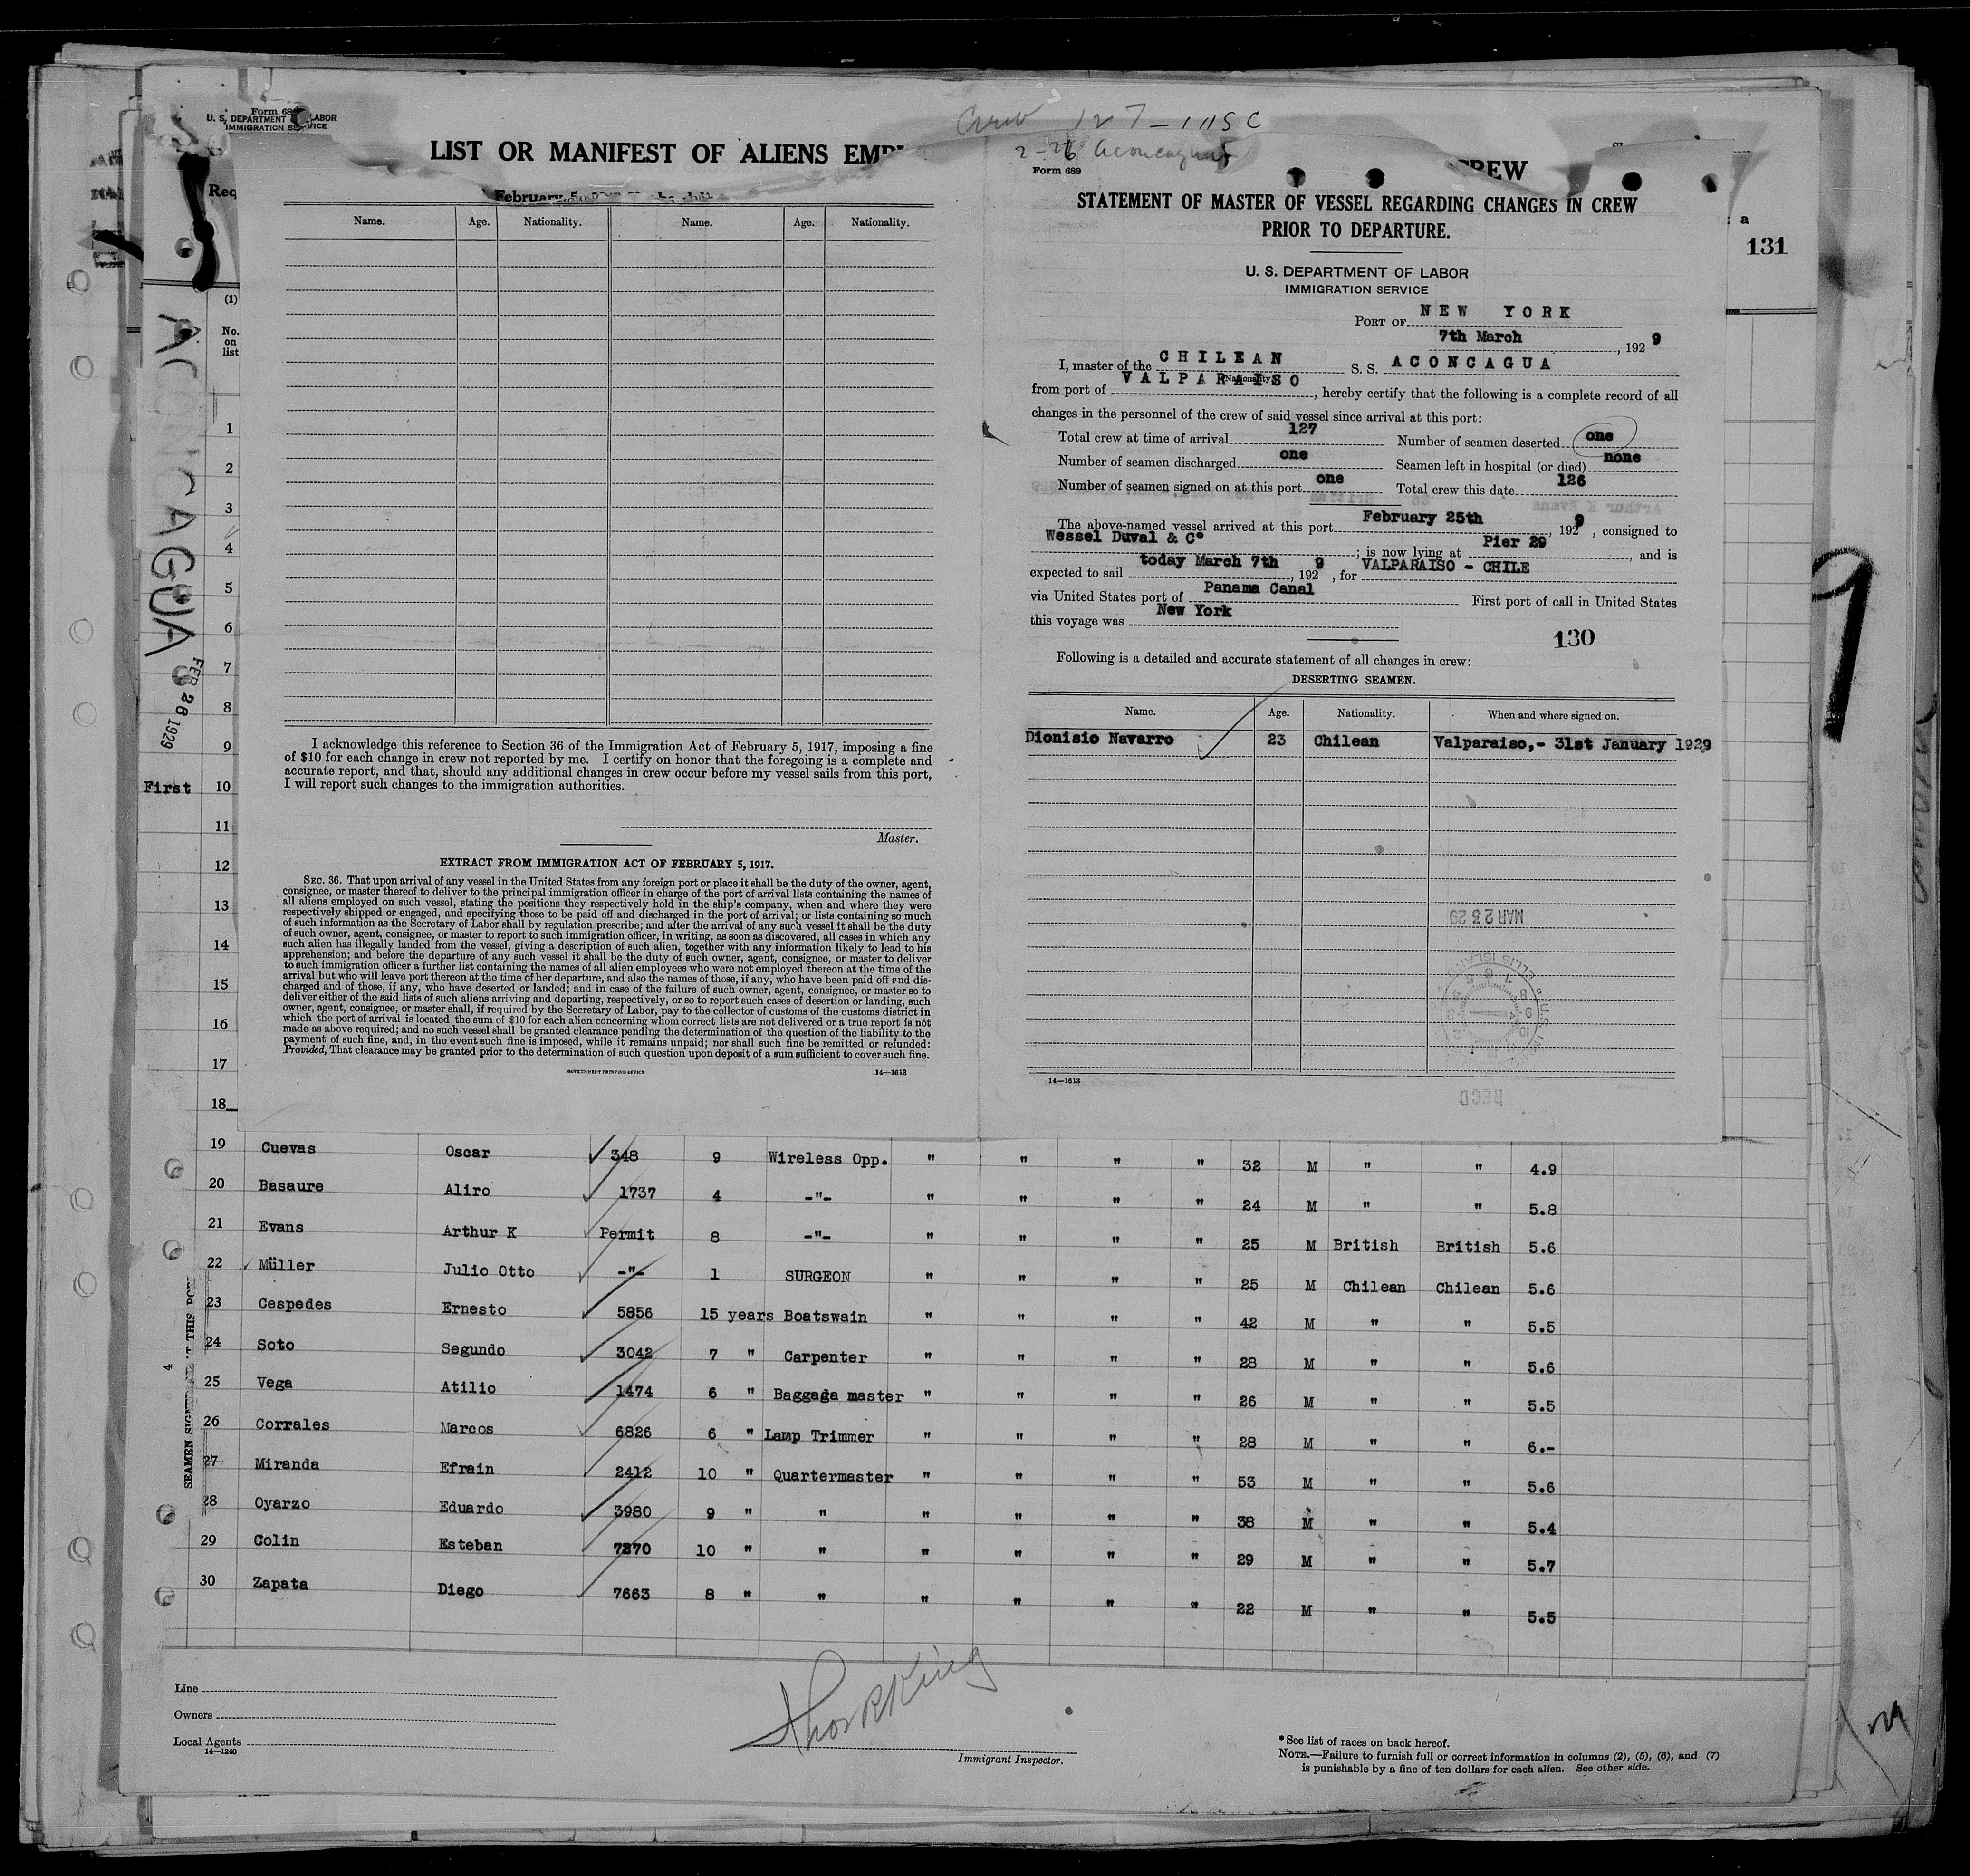 Form 689
U. S. DEPARTMENT LABOR
IMMIGRATION SERVICE
LIST OR MANIFEST OF ALIENS
Req
February 5,
Name. Age. Nationality. Name. Age. Nationality.
(1)
No. on list
ACONCAGUA
FEB 26 1929
1
2
3
4
5
6
7
8
9
First 10
11
12
13
14
15
16
17
18
I acknowledge this reference to Section 36 of the Immigration Act of February 5, 1917, imposing a fine
of $10 for each change in crew not reported by me. I certify on honor that the foregoing is a complete and
accurate report, and that, should any additional changes in crew occur before my vessel sails from this port,
I will report such changes to the immigration authorities.
Master.
EXTRACT FROM IMMIGRATION ACT OF FEBRUARY 5, 1917.
SEC. 36. That upon arrival of any vessel in the United States from any foreign port or place it shall be the duty of the owner, agent,
consignee, or master thereof to deliver to the principal immigration officer in charge of the port of arrival lists containing the names of
all aliens employed on such vessel, stating the positions they respectively hold in the ship's company, when and where they were
respectively shipped or engaged, and specifying those to be paid off and discharged in the port of arrival; or lists containing so much
of such information as the Secretary of Labor shall by regulation prescribe; and after the arrival of any such vessel it shall be the duty
of such owner, agent, consignee, or master to report to such immigration officer, in writing, as soon as discovered, all cases in which any
such alien has illegally landed from the vessel, giving a description of such alien, together with any information likely to lead to his
apprehension; and before the departure of any such vessel it shall be the duty of such owner, agent, consignee, or master to deliver
to such immigration officer a further list containing the names of all alien employees who were not employed thereon at the time of the
arrival but who will leave port thereon at the time of her departure, and also the names of those, if any, who have been paid off and dis-
charged and of those, if any, who have deserted or landed; and in case of the failure of such owner, agent, consignee, or master so to
deliver either of the said lists of such aliens arriving and departing, respectively, or so to report such cases of desertion or landing, such
owner, agent, consignee, or master shall, if required by the Secretary of Labor, pay to the collector of customs of the customs district in
which the port of arrival is located the sum of $10 for each alien concerning whom correct lists are not delivered or a true report is not
made as above required; and no such vessel shall be granted clearance pending the determination of the question of the liability to the
payment of such fine, and, in the event such fine is imposed, while it remains unpaid; nor shall such fine be remitted or refunded:
Provided, That clearance may be granted prior to the determination of such question upon deposit of a sum sufficient to cover such fine.
GOVERNMENT PRINTING OFFICE 14—1613
Crew 127 - 1115 C
2-26 Aconcagua
Form 689
CREW
STATEMENT OF MASTER OF VESSEL REGARDING CHANGES IN CREW
PRIOR TO DEPARTURE.
a
131
U. S. DEPARTMENT OF LABOR
IMMIGRATION SERVICE
PORT OF NEW YORK
7th March, 1929
I, master of the CHILEAN S. S. ACONCAGUA
(Nationality)
from port of VALPARAISO, hereby certify that the following is a complete record of all
changes in the personnel of the crew of said vessel since arrival at this port:
Total crew at time of arrival 127 Number of seamen deserted one
Number of seamen discharged one Seamen left in hospital (or died) none
Number of seamen signed on at this port one Total crew this date 126
The above-named vessel arrived at this port February 25th, 1929, consigned to
Wessel Duval & Co; is now lying at Pier 29, and is
expected to sail today March 7th, 1929, for VALPARAISO - CHILE
via United States port of Panama Canal First port of call in United States
this voyage was New York
130
Following is a detailed and accurate statement of all changes in crew:
DESERTING SEAMEN.
Name. Age. Nationality. When and where signed on.
Dionisio Navarro 23 Chilean Valparaiso,- 31st January 1929
MAR 23 29
ELLIS ISLAND
REC'D
14—1613
19 Cuevas Oscar 348 9 Wireless Opp. " " " " 32 M " " 4.9
20 Basaure Aliro 1737 4 -"- " " " " 24 M " " 5.8
21 Evans Arthur K Permit 8 -"- " " " " 25 M British British 5.6
22 Müller Julio Otto -"- 1 SURGEON " " " " 25 M Chilean Chilean 5.6
23 Cespedes Ernesto 5856 15 years Boatswain " " " " 42 M " " 5.5
24 Soto Segundo 3042 7 " Carpenter " " " " 28 M " " 5.6
25 Vega Atilio 1474 6 " Baggada master " " " " 26 M " " 5.5
26 Corrales Marcos 6826 6 " Lamp Trimmer " " " " 28 M " " 6.-
27 Miranda Efrain 2412 10 " Quartermaster " " " " 53 M " " 5.6
28 Oyarzo Eduardo 3980 9 " " " " " " 38 M " " 5.4
29 Colin Esteban 7270 10 " " " " " " 29 M " " 5.7
30 Zapata Diego 7663 8 " " " " " " 22 M " " 5.5
4
SEAMEN SIGNED AT THIS PORT
Line
Owners
Local Agents
14—1240
Immigrant Inspector.
*See list of races on back hereof.
NOTE.—Failure to furnish full or correct information in columns (2), (5), (6), and (7)
is punishable by a fine of ten dollars for each alien. See other side.